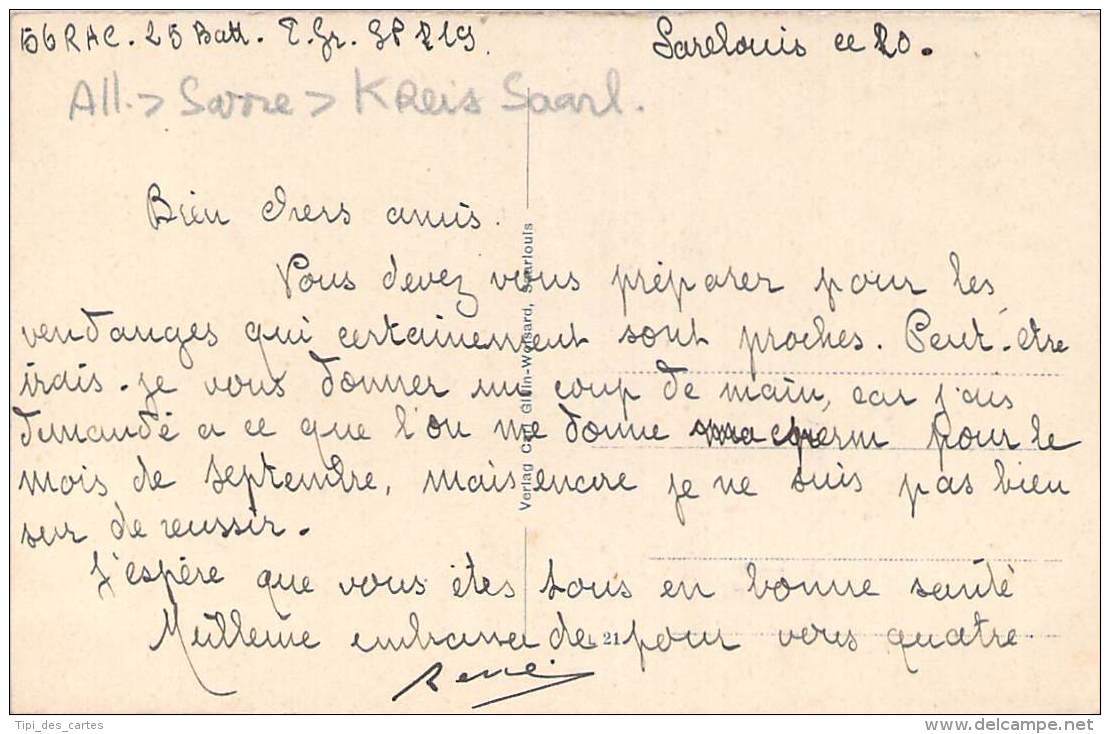 156 RAC. 25 Batt. E.Gr. SP 219. Sarelouis ce 20.
All. > Sarre > Kreis Saarl.
Bien chers amis.
Vous devez vous préparer pour les
vendanges qui certainement sont proches. Peut-être
irais-je vous donner un coup de main, car j'ais
demandé a ce que l'on me donne ma perm pour le
mois de septembre, mais encore je ne suis pas bien
sur de reussir.
J'espère que vous êtes tous en bonne santé
Meilleure embrassade pour vous quatre
René
Verlag Carl Glivin-Woisard, Saarlouis
L 21
Tipi_des_cartes
delcampe.net